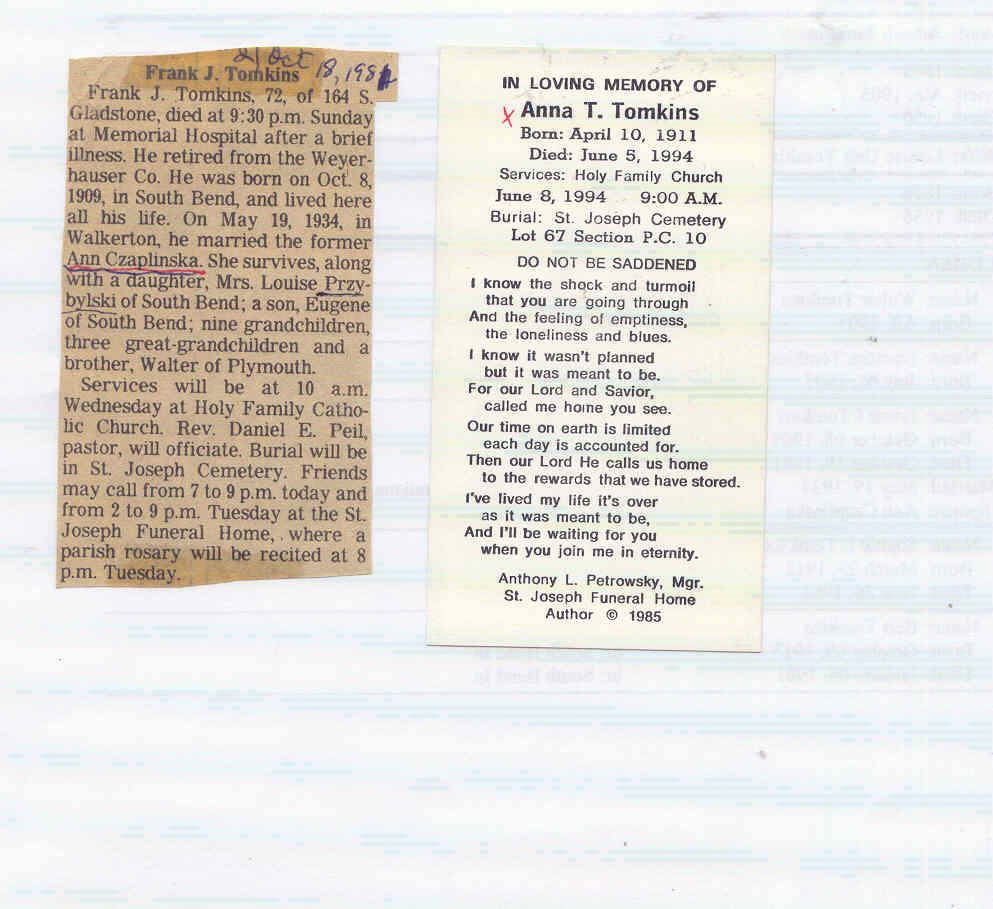 21 Oct
18, 1981
Frank J. Tomkins
Frank J. Tomkins, 72, of 164 S.
Gladstone, died at 9:30 p.m. Sunday
at Memorial Hospital after a brief
illness. He retired from the Weyer-
hauser Co. He was born on Oct. 8,
1909, in South Bend, and lived here
all his life. On May 19, 1934, in
Walkerton, he married the former
Ann Czaplinska. She survives, along
with a daughter, Mrs. Louise Przy-
bylski of South Bend; a son, Eugene
of South Bend; nine grandchildren,
three great-grandchildren and a
brother, Walter of Plymouth.
Services will be at 10 a.m.
Wednesday at Holy Family Catho-
lic Church. Rev. Daniel E. Peil,
pastor, will officiate. Burial will be
in St. Joseph Cemetery. Friends
may call from 7 to 9 p.m. today and
from 2 to 9 p.m. Tuesday at the St.
Joseph Funeral Home, where a
parish rosary will be recited at 8
p.m. Tuesday.
IN LOVING MEMORY OF
x Anna T. Tomkins
Born: April 10, 1911
Died: June 5, 1994
Services: Holy Family Church
June 8, 1994 9:00 A.M.
Burial: St. Joseph Cemetery
Lot 67 Section P.C. 10
DO NOT BE SADDENED
I know the shock and turmoil
that you are going through
And the feeling of emptiness,
the loneliness and blues.
I know it wasn't planned
but it was meant to be.
For our Lord and Savior,
called me home you see.
Our time on earth is limited
each day is accounted for.
Then our Lord He calls us home
to the rewards that we have stored.
I've lived my life it's over
as it was meant to be,
And I'll be waiting for you
when you join me in eternity.
Anthony L. Petrowsky, Mgr.
St. Joseph Funeral Home
Author © 1985